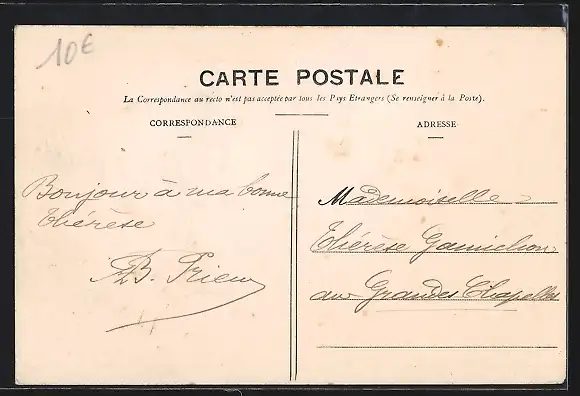 10€
CARTE POSTALE
La Correspondance au recto n'est pas acceptée par tous les Pays Etrangers (Se renseigner à la Poste).
CORRESPONDANCE
ADRESSE
Bonjour à ma bonne
Thérèse
Mademoiselle
Thérèse
aux Grandes Chapelles